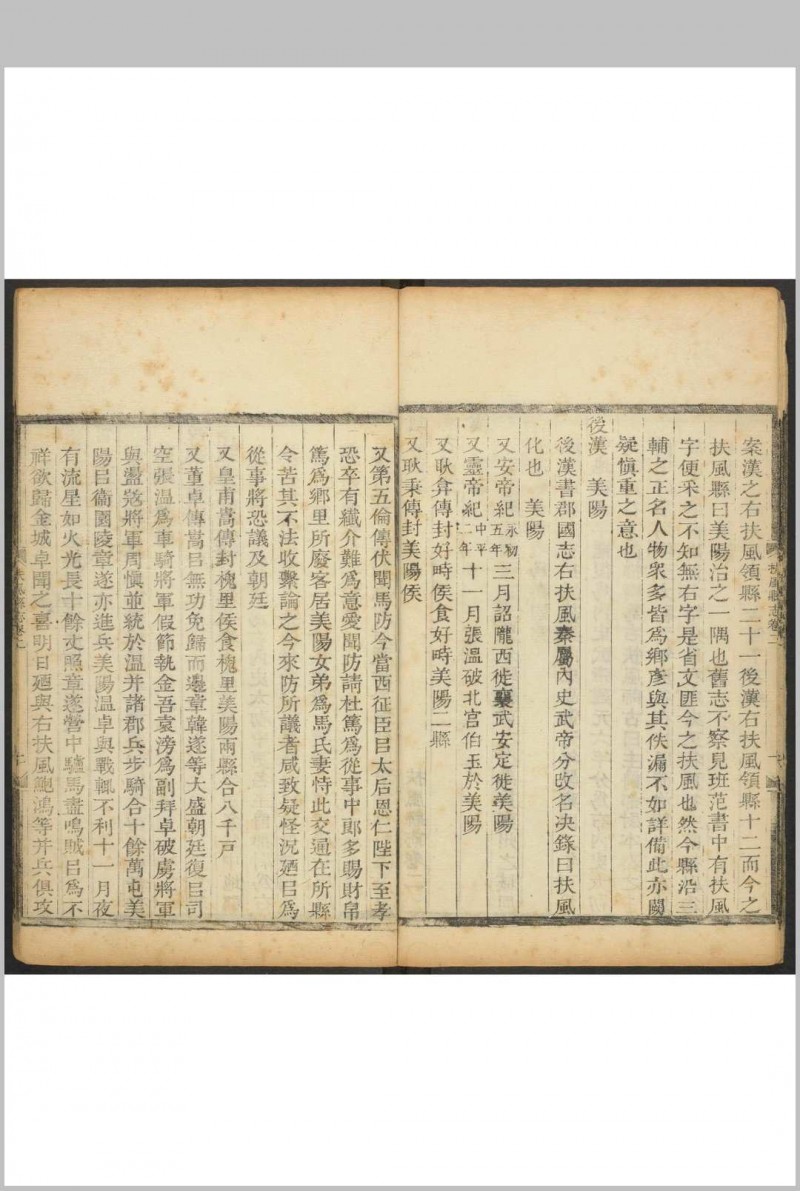 案漢之右扶風領縣二十一後漢右扶風領縣十二而今之
扶風縣曰美陽治之一隅也舊志不察見班范書中有扶風
字便采之不知無右字是省文匪今之扶風也然今縣沿三
輔之正名人物衆多皆爲鄉彥與其佚漏不如詳備此亦闕
疑慎重之意也
後漢　美陽
後漢書郡國志右扶風秦屬內史武帝分改名决錄曰扶風
化也　美陽
又安帝紀永初五年三月詔隴西徙襄武安定徙美陽
又靈帝紀中平二年十一月張溫破北宮伯玉於美陽
又耿弇傳封好畤侯食好畤美陽二縣
又耿秉傳封美陽侯
又第五倫傳伏聞馬防今當西征臣㠯太后恩仁陛下至孝
恐卒有纖介難爲意愛聞防請杜篤爲從事中郎多賜財帛
篤爲鄉里所廢客居美陽女弟爲馬氏妻恃此交通在所縣
令苦其不法收繫論之今來防所議者咸致疑怪況廼㠯爲
從事將恐議及朝廷
又皇甫嵩傳封槐里侯食槐里美陽兩縣合八千戸
又董卓傳嵩㠯無功免歸而邊章韓遂等大盛朝廷復㠯司
空張溫爲車騎將軍假節執金吾袁滂爲副拜卓破虜將軍
與盪寇將軍周愼並統於溫并諸郡兵步騎合十餘萬屯美
陽㠯衞園陵章遂亦進兵美陽溫卓與戰輒不利十一月夜
有流星如火光長十餘丈照章遂營中驢馬盡鳴賊㠯爲不
祥欲歸金城卓聞之喜明日廼與右扶風鮑鴻等并兵俱攻